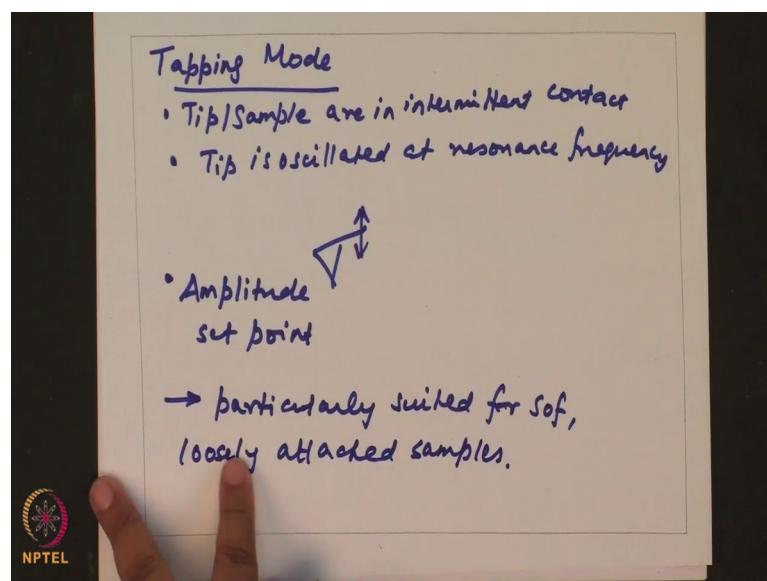 Tapping Mode
• Tip/Sample are in intermittent contact
• Tip is oscillated at resonance frequency
• Amplitude
set point
→ particularly suited for sof,
loosely attached samples.
NPTEL